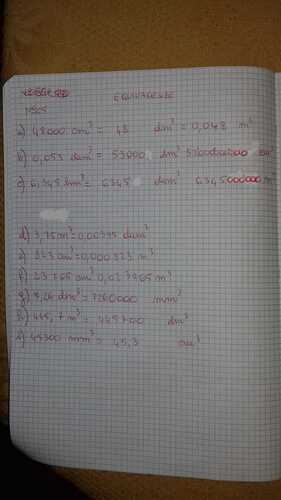 EQUIVALENZE
N565
a) 48000 cm³ = 48 dm³ = 0,048 m³
b) 0,053 dam³ = 53000 dm³ 53000000 cm³
c) 6,345 hm³ = 6345 dam³ 6345000000 m
d) 3,75 m³ = 0,00375 dam³
e) 323 cm³ = 0,000323 m³
f) 23765 cm³ 0,023765 m³
g) 7,26 dm³ = 7260000 mm³
h) 445,7 m³ = 445700 dm³
i) 45300 mm³ = 45,3 cm³